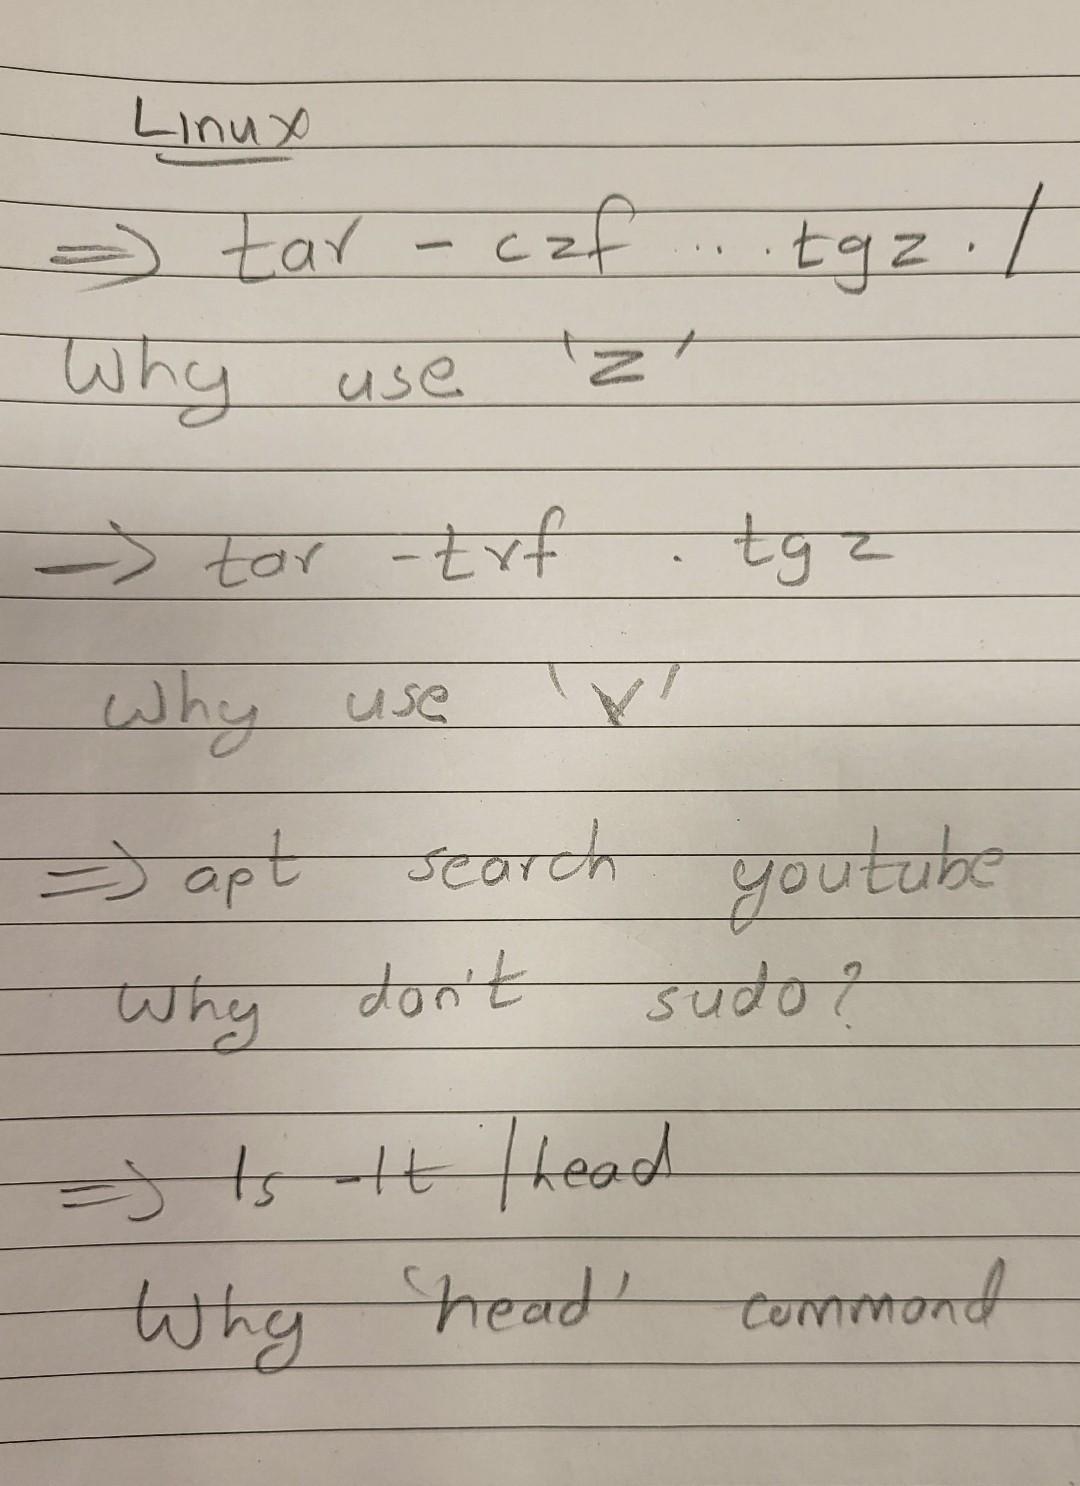 Linux
⇒ tar - czf ... . tgz . /
Why use 'z'
→ tar -tvf . tgz
Why use 'v'
⇒ apt search youtube
Why don't sudo?
⇒ ls -lt | head
Why 'head' command